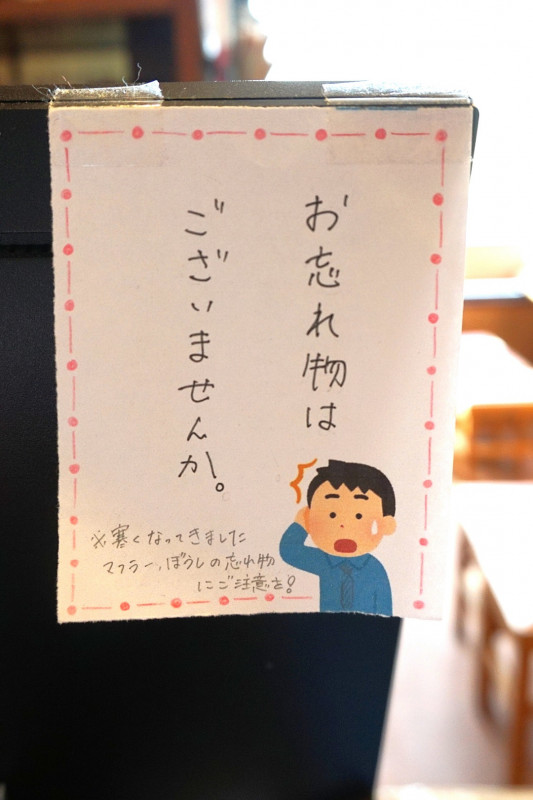 お忘れ物は
ございませんか。
※寒くなってきました
マフラー、ぼうしの忘れ物
にご注意を!